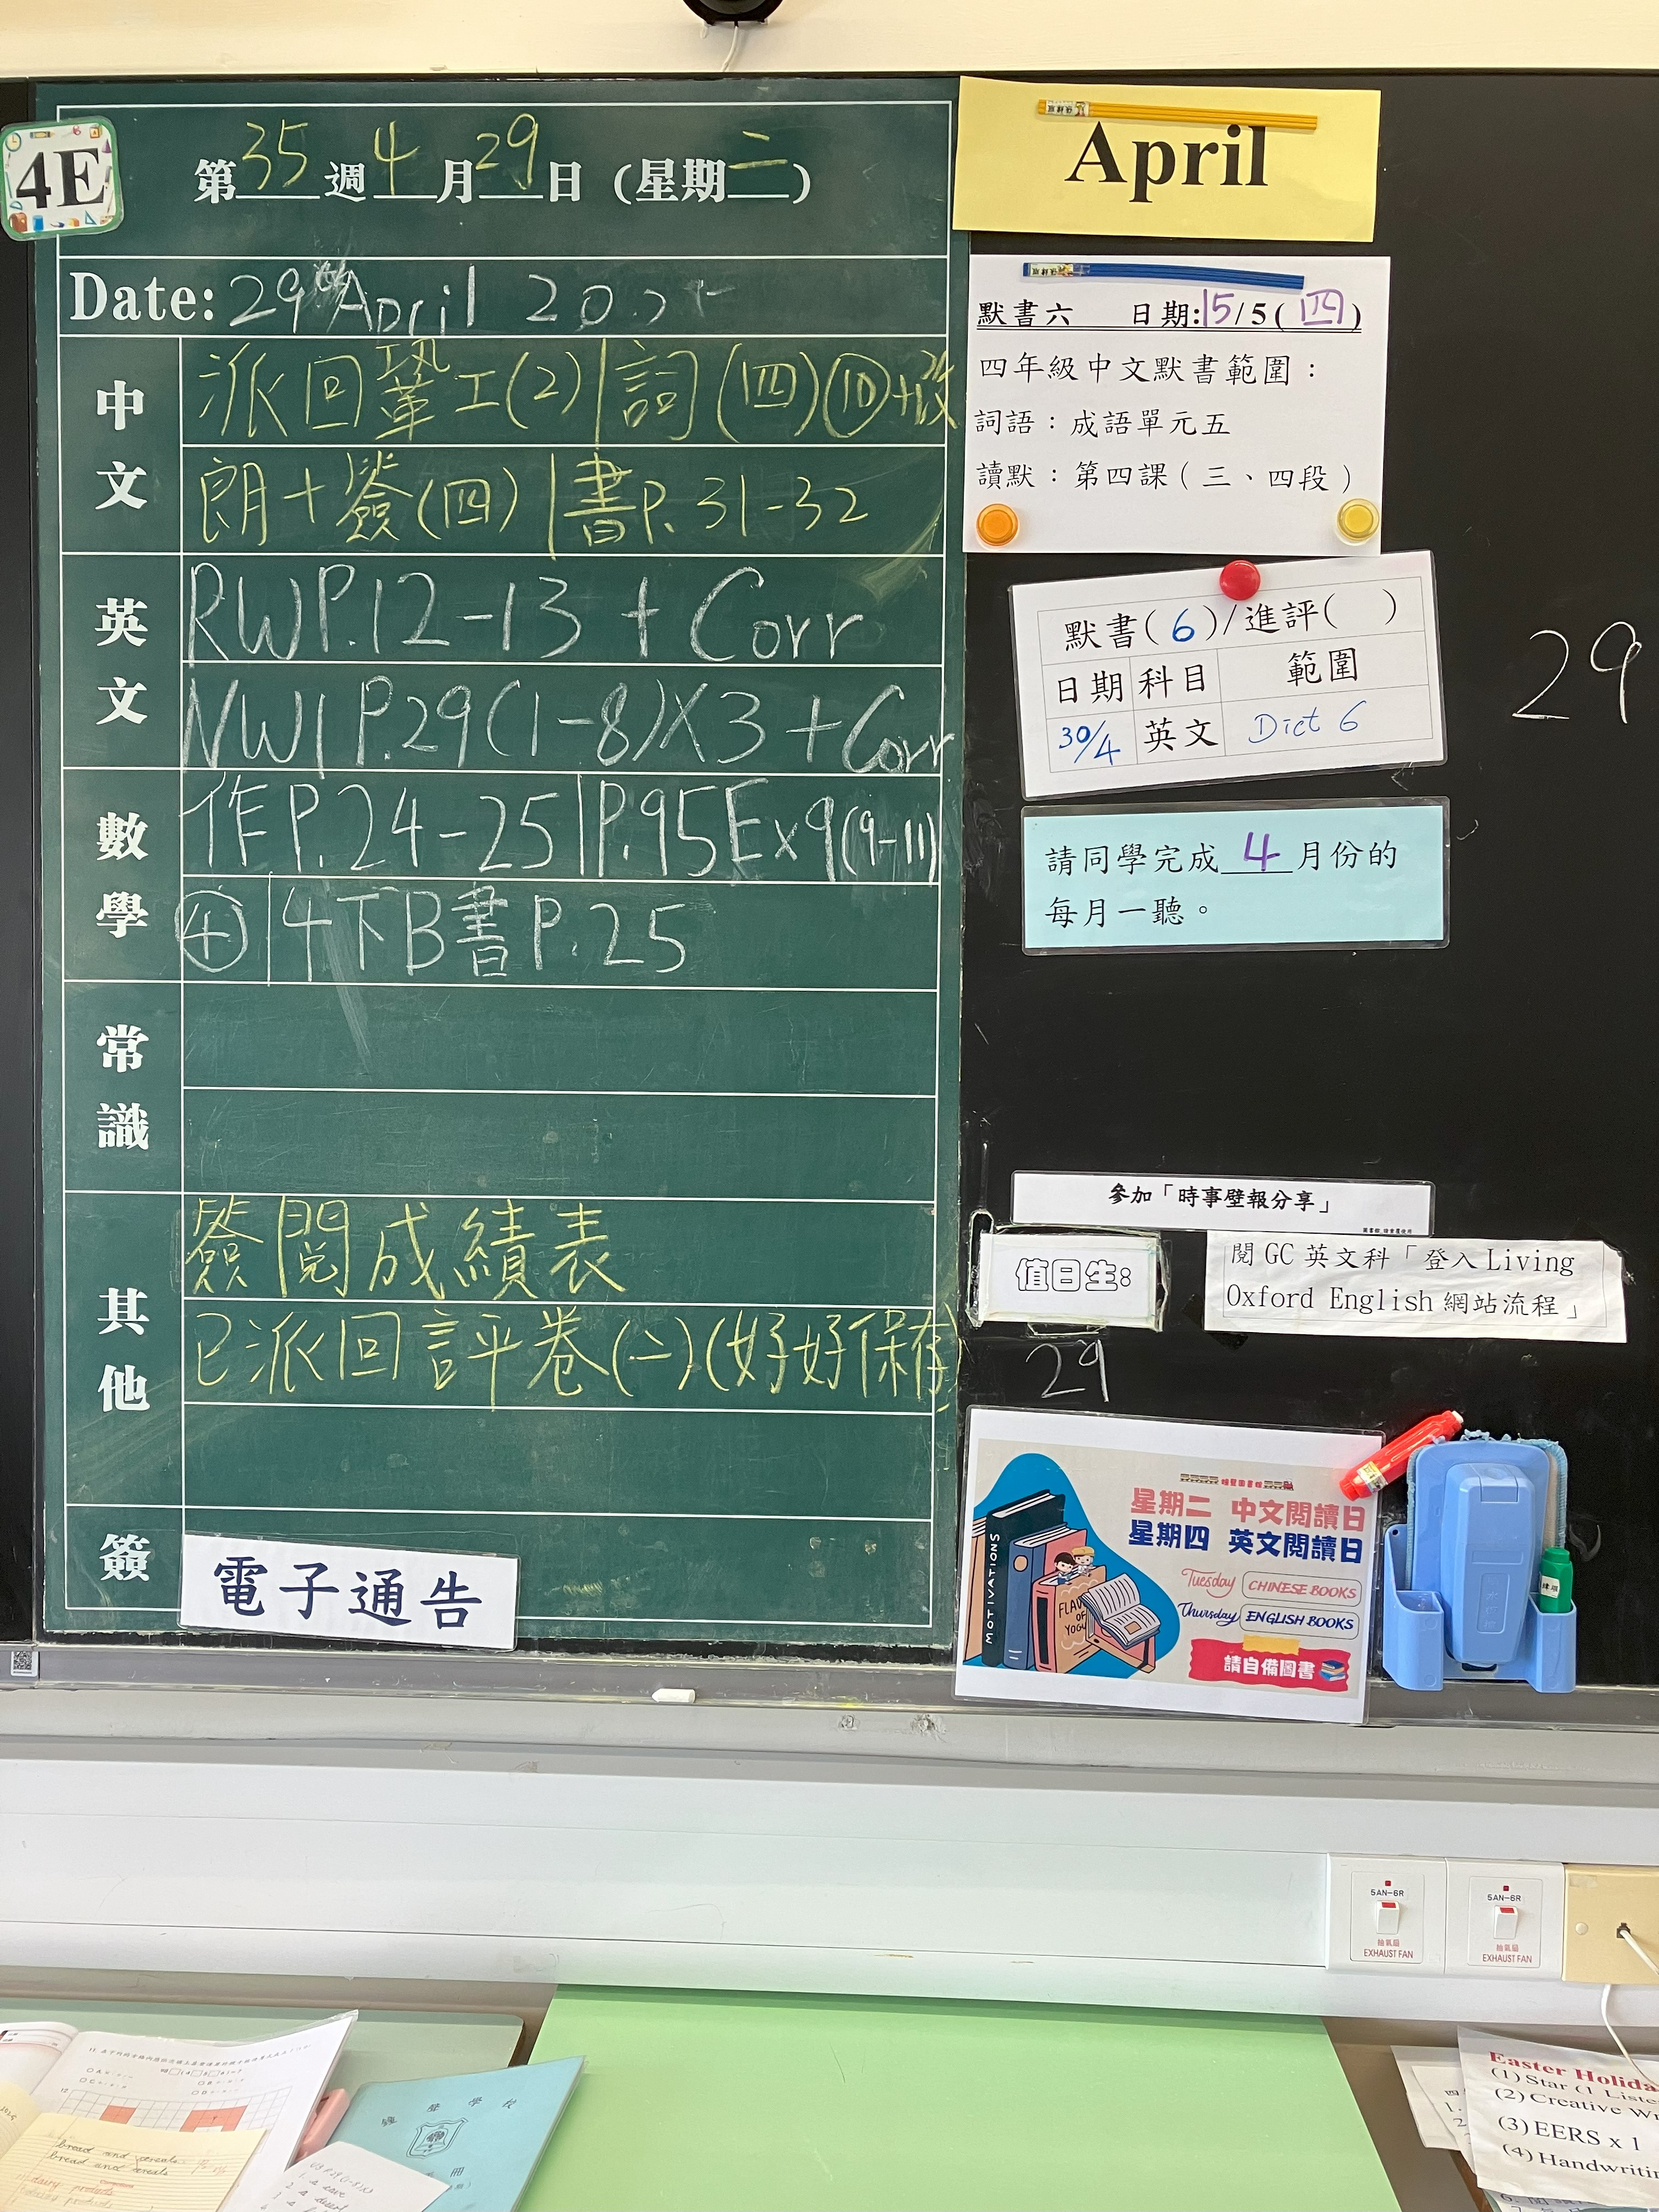 4E
第35週4月29日(星期二)
Date: 29th April 20
中文
派回鞏工(2)|詞(四)⑩+改
朗+簽(四)|書P.31-32
英文
RWP.12-13 + Corr
NW1 P.29(1-8)X3 + Corr
數學
作P.24-25|P.95Ex9(9-11)
④|4下B書P.25
常識
其他
簽閱成績表
已派回評卷(二)(好好保存)
簽
電子通告
April
默書六 日期:15/5(四)
四年級中文默書範圍:
詞語:成語單元五
讀默:第四課(三、四段)
默書(6)/進評( )
日期 科目 範圍
30/4 英文 Dict 6
29
請同學完成4月份的
每月一聽。
參加「時事壁報分享」
值日生:
29
閱 GC 英文科「登入 Living
Oxford English 網站流程」
星期二 中文閱讀日
星期四 英文閱讀日
Tuesday CHINESE BOOKS
Thursday ENGLISH BOOKS
請自備圖書
MOTIVATIONS
FLAV
OF
YOGU
5AN-6R
抽氣扇
EXHAUST FAN
5AN-6R
抽氣扇
EXHAUST FAN
bread and cereals
bread and cereals
Easter Holida
(1) Star (1 Liste
(2) Creative Wr
(3) EERS x 1
(4) Handwritin